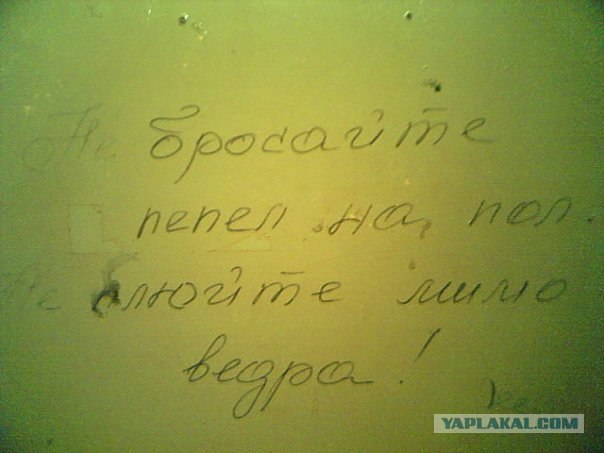 Не бросайте
пепел на пол.
Не блюйте мимо
ведра!
YAPLAKAL.COM